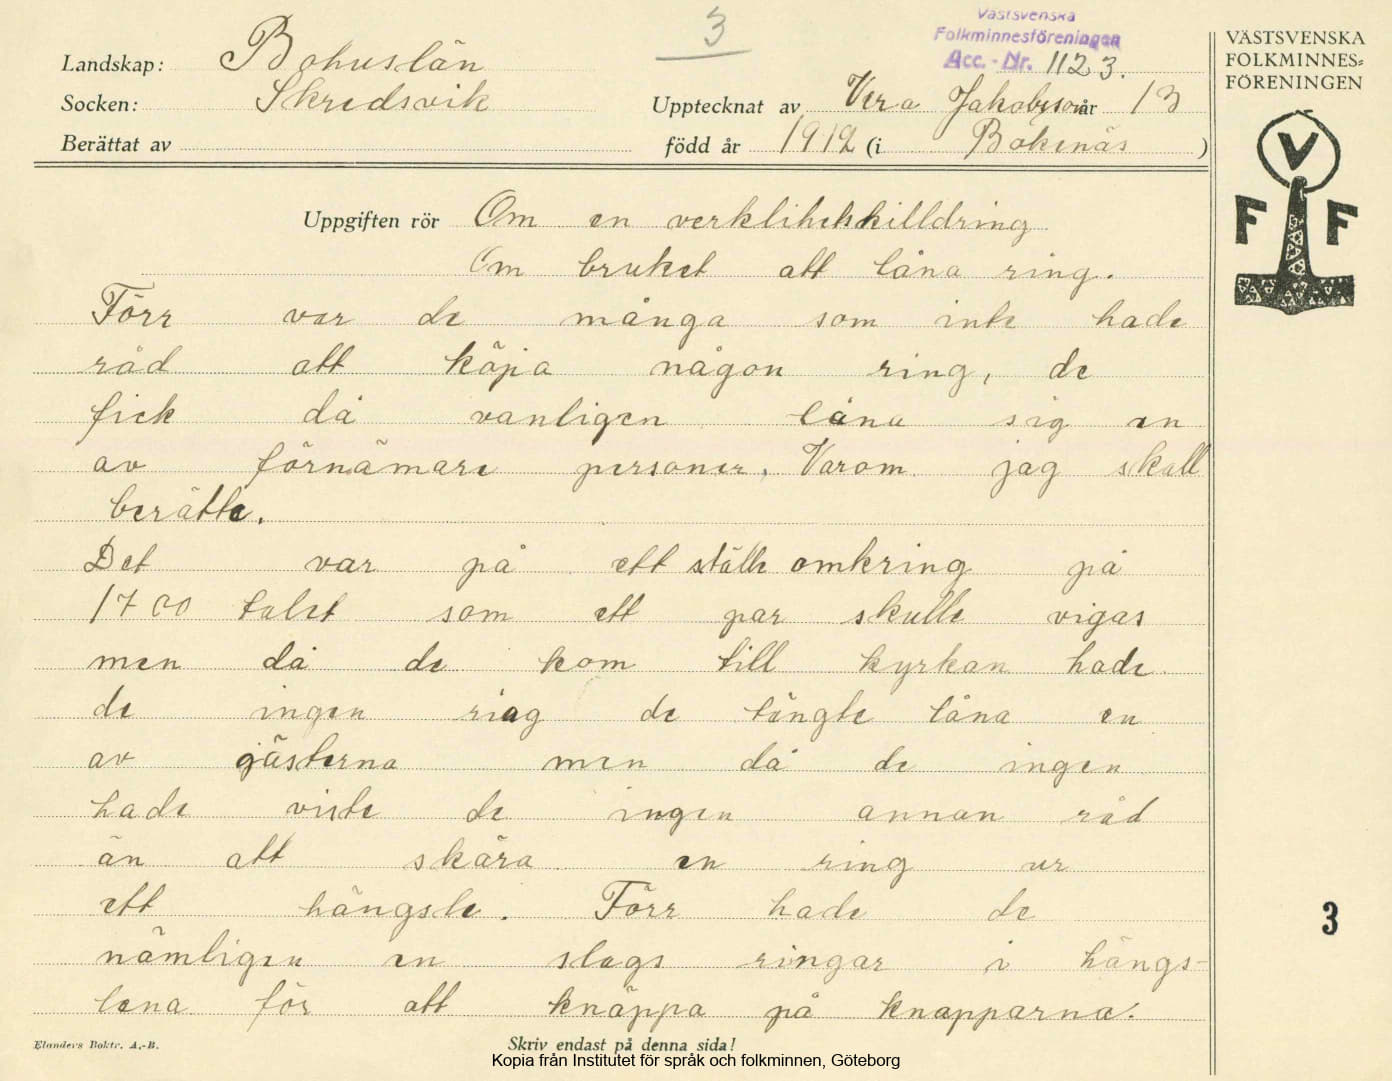 3
Västsvenska
Folkminnesföreningen
Acc. - Nr. 1123.
VÄSTSVENSKA
FOLKMINNES=
FÖRENINGEN
V
F F
Landskap: Bohuslän
Socken: Skredsvik
Upptecknat av Vera Jakobsson år 13
Berättat av
född år 1912 (i Bokenäs )
Uppgiften rör Om en verklihetskilldring
Om bruket att låna ring.
Förr var de många som inte hade
råd att köpa någon ring, de
fick då vanligen låna sig en
av förnämare personer. Varom jag skall
berätte.
Det var på ett ställe omkring på
1700 talet som ett par skulle vigas
men då de kom till kyrkan hade
de ingen riag de tängte låna en
av gästerna men då de ingen
hade viste de ingen annan råd
än att skära en ring ur
ett hängsle. Förr hade de
nämligen en slags ringar i hängs-
lena för att knäppa på knapparna.
3
Elanders Boktr. A.-B.
Skriv endast på denna sida!
Kopia från Institutet för språk och folkminnen, Göteborg